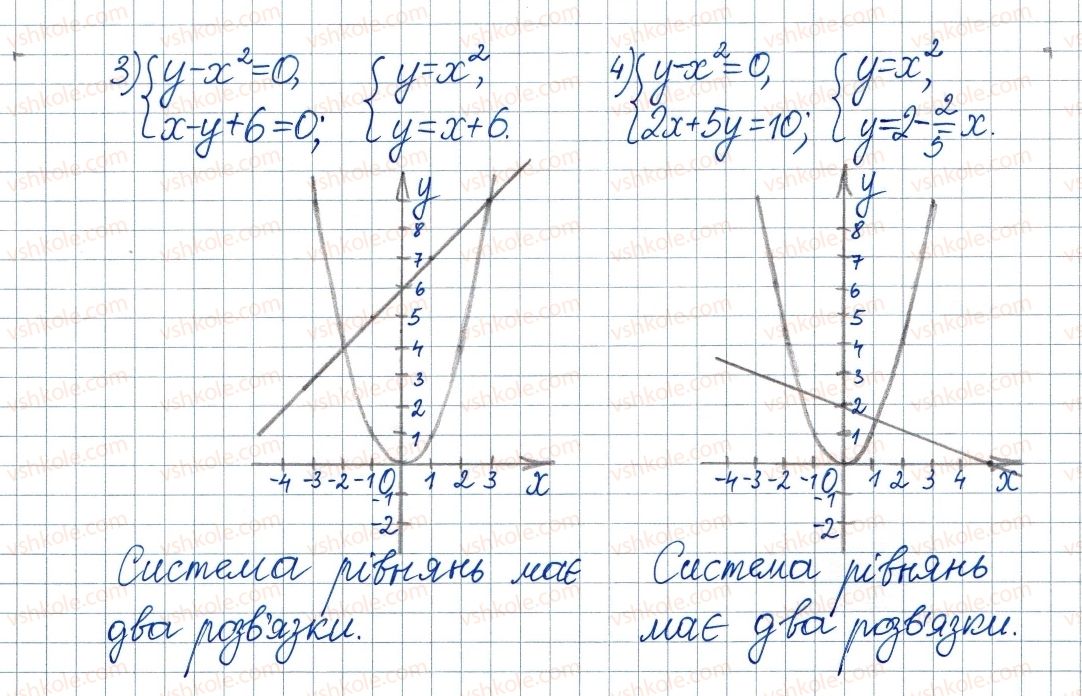 3) { y-x²=0, { y=x²,
x-y+6=0; y=x+6.
y
8
7
6
5
4
3
2
1
-4 -3 -2 -1 0 1 2 3 x
-1
-2
Система рівнянь має
два розв'язки.
4) { y-x²=0, { y=x²,
2x+5y=10; y=2-2/5 x.
y
8
7
6
5
4
3
2
1
-4 -3 -2 -1 0 1 2 3 4 x
-1
-2
Система рівнянь
має два розв'язки.
vshkole.com